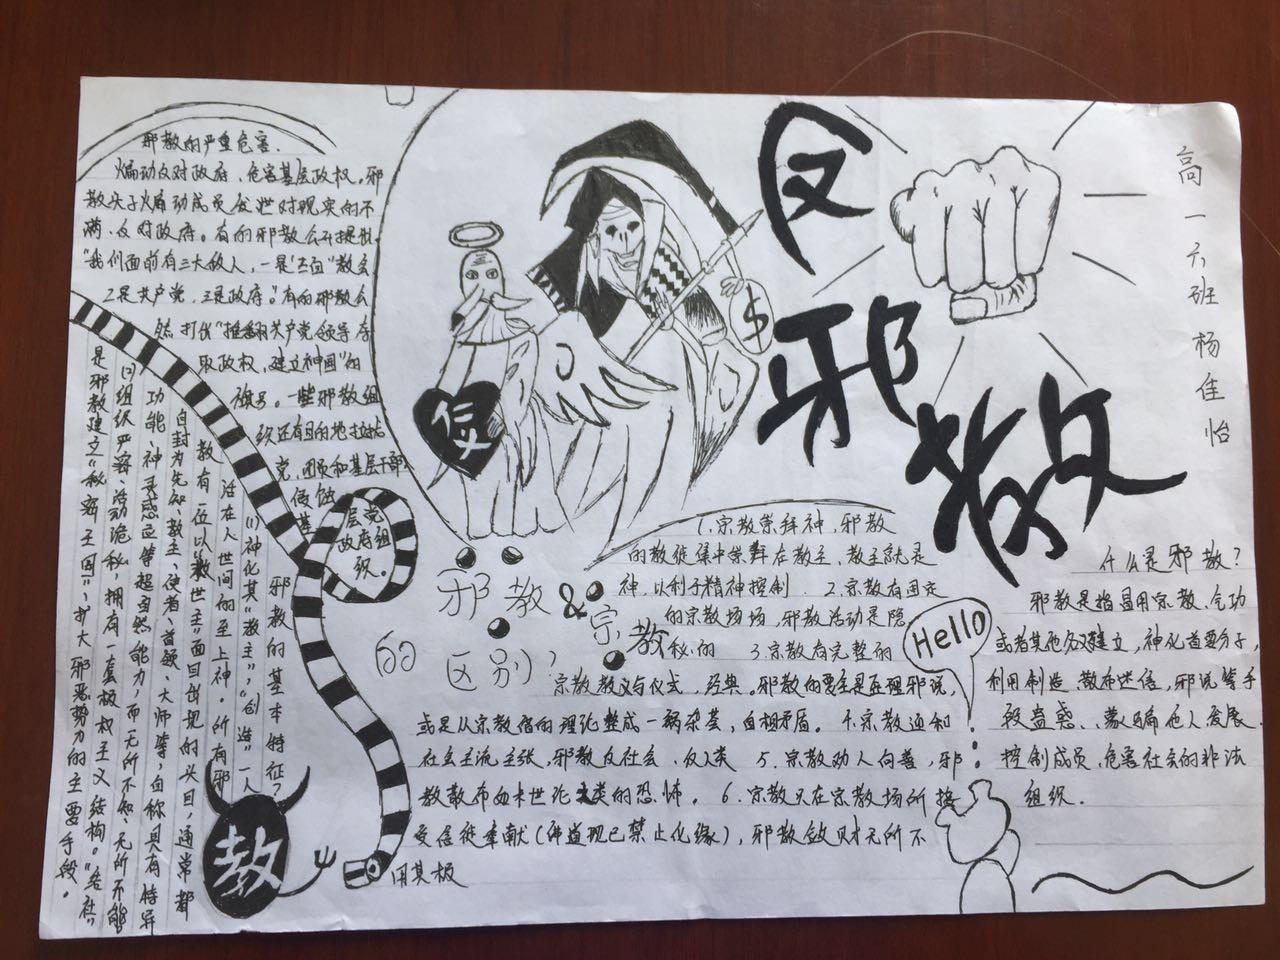 反邪教
高一六班 杨佳怡
邪教的严重危害.
煽动反对政府、危害基层政权。邪
教头子煽动成员发泄对现实的不
满、反对政府。有的邪教公开提出
"我们面前有三大敌人,一是"教会
2是共产党,三是政府。"有的邪教公
然打出"推翻共产党领导夺
取政权,建立神国"的
旗号。一些邪教组
织还有目的地拉拢
党、团员和基层干部,
侵蚀
基
层党
政府组
织。
邪教的基本特征?
(1)神化其"教主",创造"一人
活在人世间的至上神。所有邪
教有一位以"救世主"面目出现的头目,通常都
自封为先知、教主、使者、首领、大师等,自称具有特异
功能、神灵感应等超自然能力,而无所不知、无所不能
(2)组织严密、活动诡秘,拥有一套极权主义结构。"结社"
是邪教建立"秘密王国"、扩大邪恶势力的主要手段。
信
$
教
邪教&宗教
的区别,
1、宗教崇拜神,邪教
的教徒集中崇拜在教主、教主就是
神,以利于精神控制. 2.宗教有固定
的宗教场场,邪教活动是隐
秘的 3.宗教有完整的
宗教教义与仪式,经典。邪教的要主是歪理邪说,
或是从宗教偕的理论整成一锅杂荟,自相矛盾。4.宗教迫和
社会主流主张,邪教反社会、反人类 5.宗教劝人向善,邪
教散布如末世论之类的恐怖. 6.宗教只在宗教场所接
受信徒奉献(佛道现已禁止化缘),邪教敛财无所不
用其极
Hello
什么是邪教?
邪教是指冒用宗教、气功
或者其他名义建立,神化首要分子,
利用制造、散布迷信,邪说等手
段蛊惑、蒙骗他人发展、
控制成员、危害社会的非法
组织.